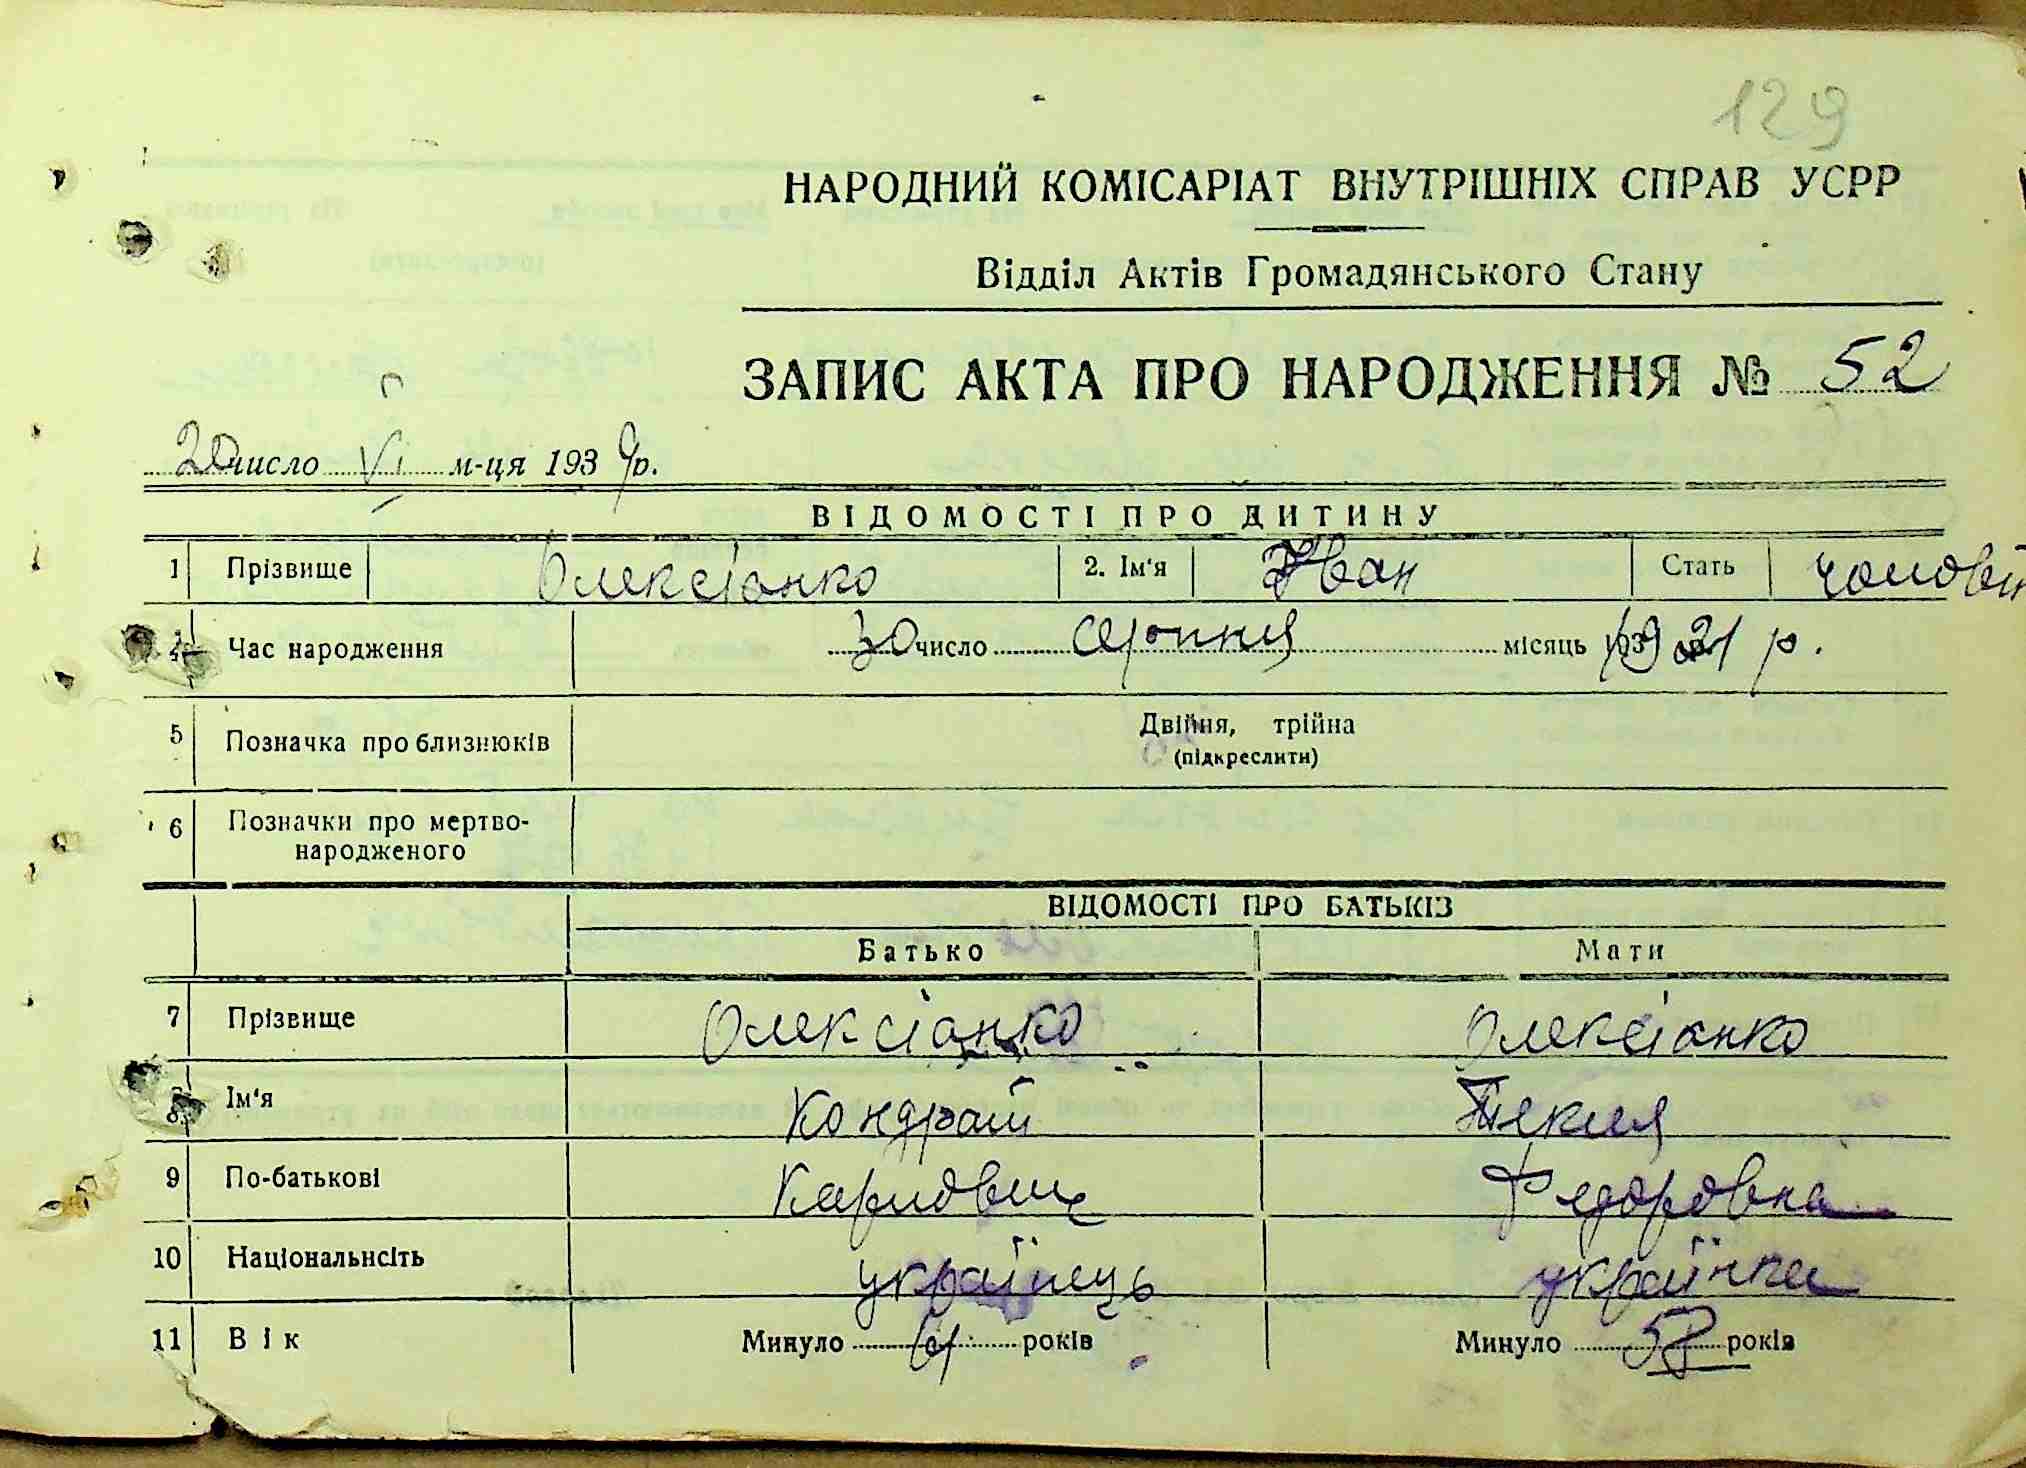 129
НАРОДНИЙ КОМІСАРІАТ ВНУТРІШНІХ СПРАВ УСРР
Відділ Актів Громадянського Стану
ЗАПИС АКТА ПРО НАРОДЖЕННЯ № 52
20 число VI м-ця 1939 р.
ВІДОМОСТІ ПРО ДИТИНУ
1 Прізвище Олексіанко 2. Ім'я Іван Стать чоловіч
Час народження 30 число серпння місяць 1921 р.
5 Позначка про близнюків Двійня, трійна
(підкреслити)
6 Позначки про мертво-
народженого
ВІДОМОСТІ ПРО БАТЬКІЗ
Батько Мати
7 Прізвище Олексіанко Олексіанко
8 Ім'я Кондрат Текля
9 По-батькові Карпович Федоровна
10 Національнсіть українець українка
11 Вік Минуло 61 років Минуло 58 років